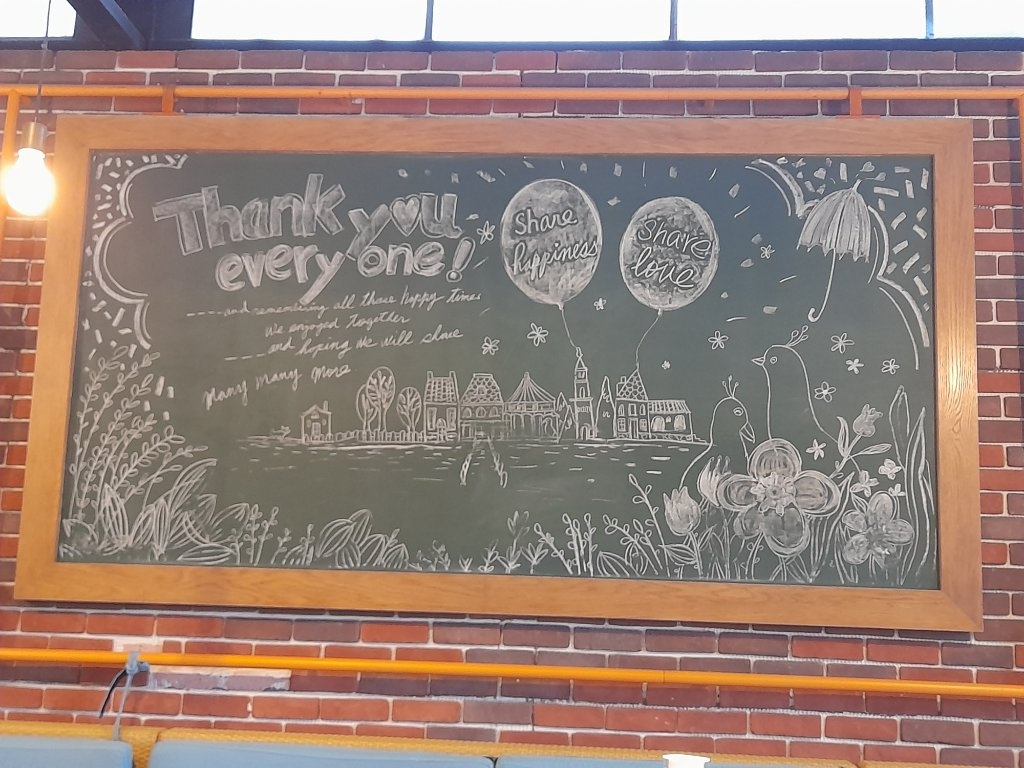 Thank you
every one!
----and remembering all those happy times
We engoged Together
----and hoping we will share
Many Many More
Share
happiness
Share
love